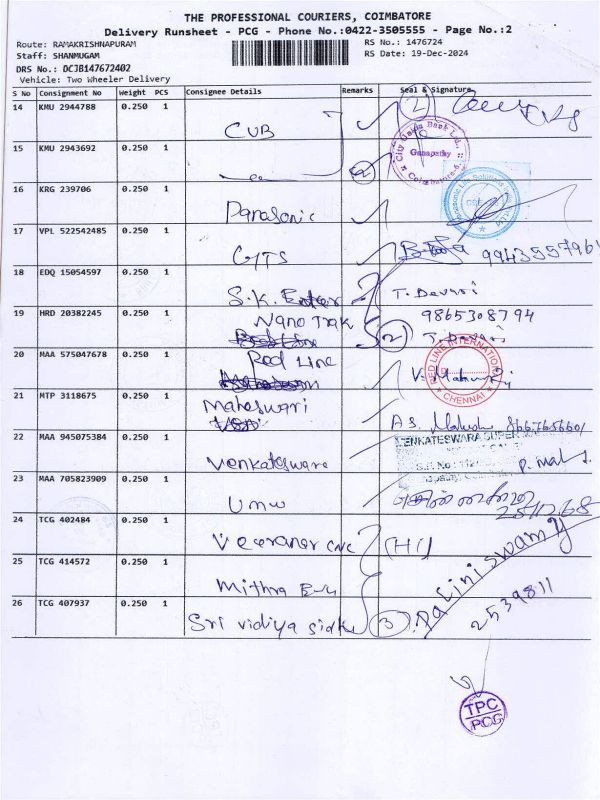 THE PROFESSIONAL COURIERS, COIMBATORE
Delivery Runsheet - PCG - Phone No.:0422-3505555 - Page No.:2
Route: RAMAKRISHNAPURAM RS No.: 1476724
Staff: SHANMUGAM RS Date: 19-Dec-2024
DRS No.: DCJB147672402
Vehicle: Two Wheeler Delivery
S No Consignment No Weight PCS Consignee Details Remarks Seal & Signature
14 KMU 2944788 0.250 1 CUB 2
15 KMU 2943692 0.250 1 2
City Union Bank Ltd., Ganapathy Coimbatore-6.
16 KRG 239706 0.250 1 Panasonic
17 VPL 522542485 0.250 1 GTS
18 EDQ 15054597 0.250 1 S.K. T. Devari
19 HRD 20382245 0.250 1 Nano Trak 9865308794
2 T. Devari
20 MAA 575047678 0.250 1 Red Line
RED LINE INTERNATIONAL CHENNAI
21 MTP 3118675 0.250 1 Maheswari
22 MAA 945075384 0.250 1 Venkateswara
VENKATESWARA SUPER
23 MAA 705823909 0.250 1 Umw
24 TCG 402484 0.250 1 CNC (H1)
25 TCG 414572 0.250 1 Mithra
26 TCG 407937 0.250 1 Sri vidiya 3 Paliniswamy
2539811
TPC
PCG